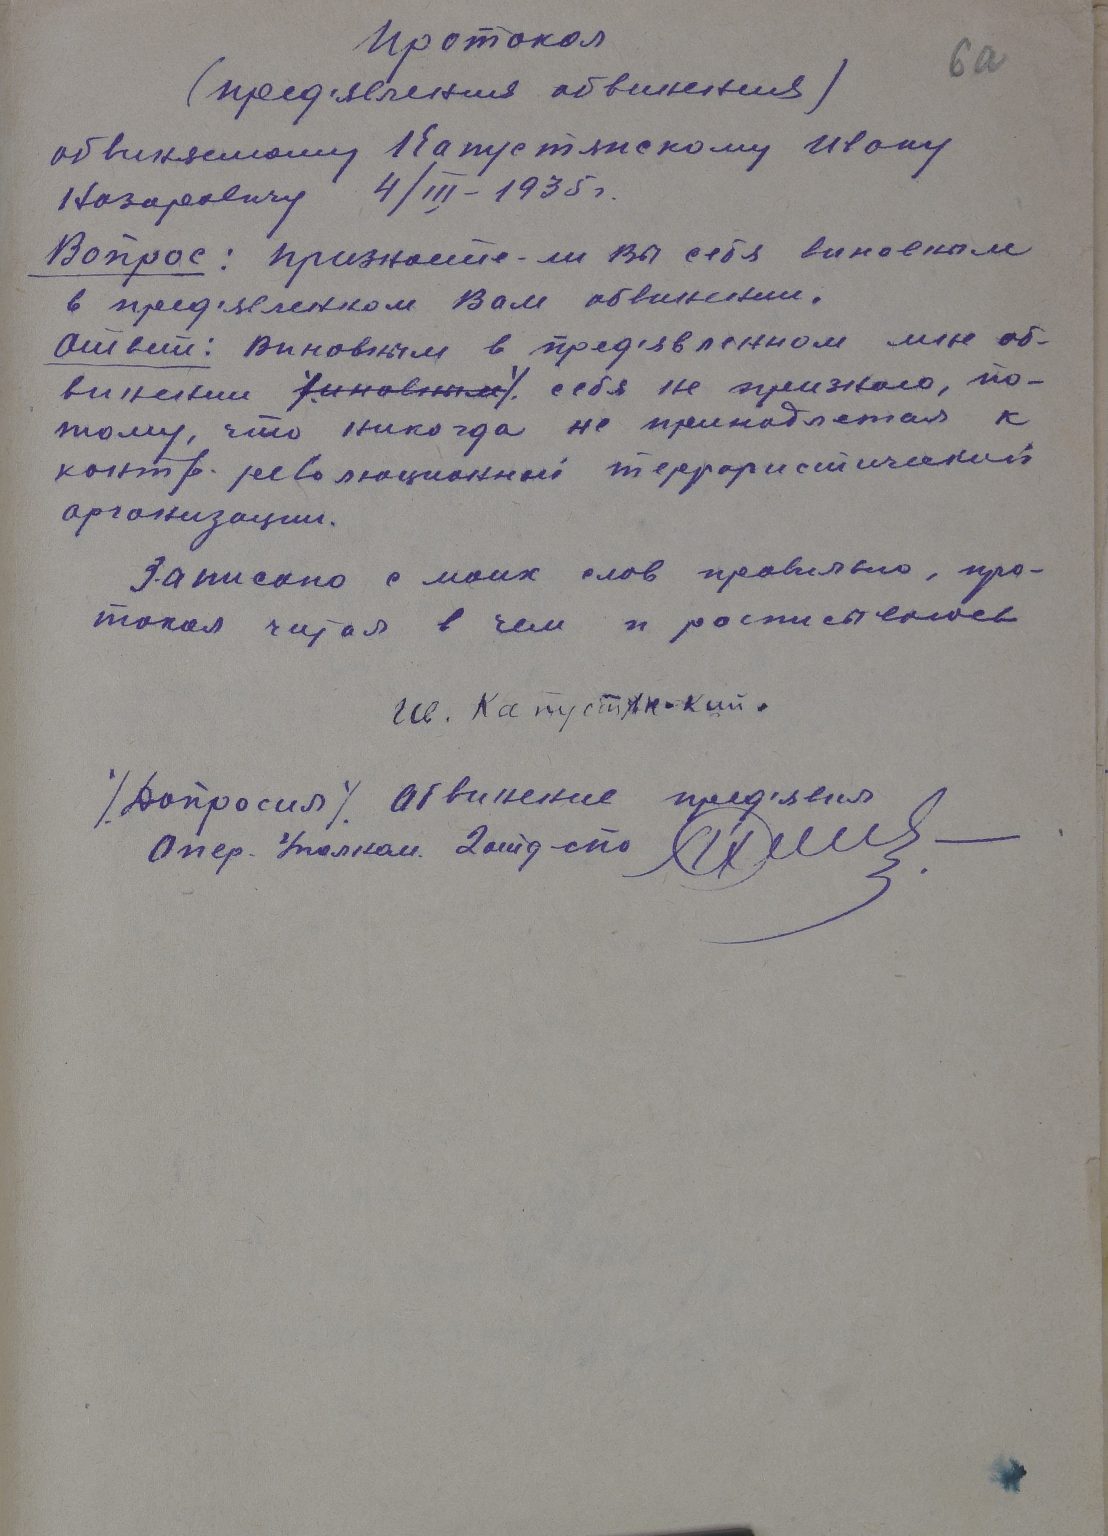 Протокол
6а
(пред'явления обвинения)
обвиняемому Капустянскому Ивану
Назаровичу 4/III-1935 г.
Вопрос: Признаете-ли Вы себя виновным
в пред'явленном Вам обвинении.
Ответ: Виновным в пред'явленном мне об-
винении виновным себя не признаю, по-
тому, что никогда не принадлежал к
контр. революционной террористической
организации.
Записано с моих слов правильно, про-
токол читал в чем и росписываюсь
Ив. Капустянский.
Допросил Обвинение пред'явил
Опер. Уполном. 2 отд-спо